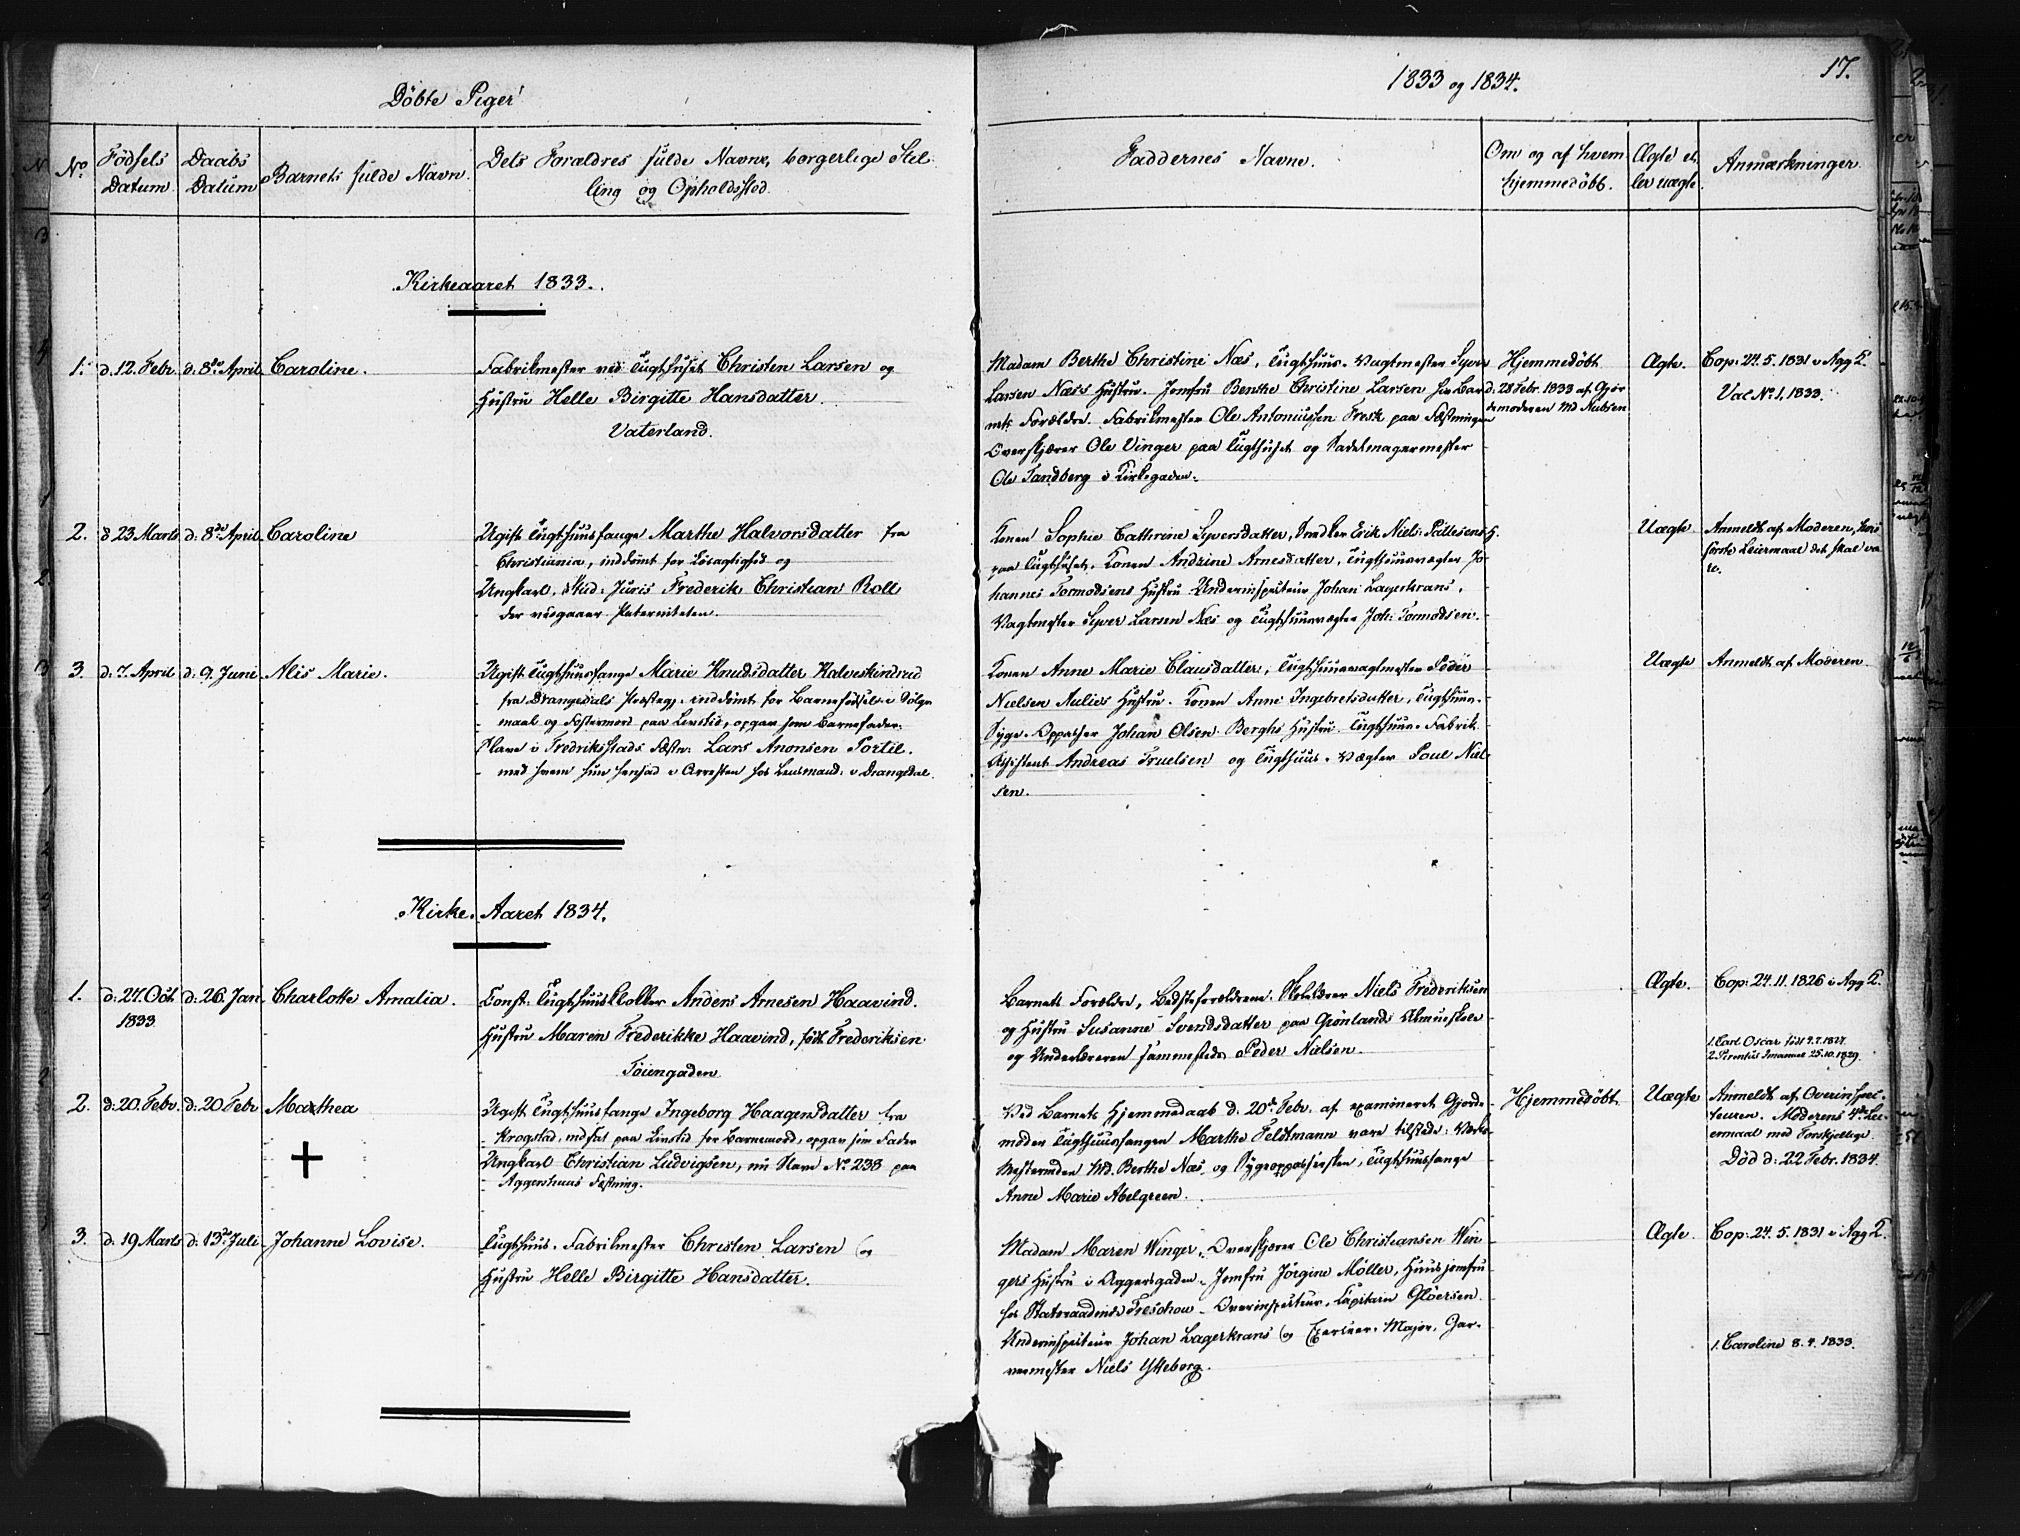 Døbte Piger
1833 og 1834.
17.
No.
Fødsels Datum
Daabs Datum
Barnets fulde Navn.
Dets Forældres fulde Navne, borgerlige Stel-
ling og Opholdssted.
Faddernes Navne.
Om og af hvem
hjemmedøbt.
Ægte el-
ler uægte.
Anmærkninger
Kirkeaaret 1833.
1.
d. 12. Febr.
d. 8de April
Caroline.
Fabrikmester ved Tugthuset Christen Larsen og
Hustru Helle Birgitte Hansdatter
Vaterland.
Madam Berthe Christine Næs, Tugthuus-Vagtmester Syver
Larsen Næs's Hustru. Jomfru Benthe Christine Larsen
Forældre. Fabrikmester Ole Antoniussen Fresk paa Fæstningen
Overskjærer Ole Vinger paa Tugthuset og Sadelmagermester
Ole Sandberg i Kirkegaden.
Hjemmedøbt
d. 28 Febr. 1833 af Gjor-
demoderen Md Nielsen
Ægte.
Cop: 24. 5. 1831 i Agg K.
Vac No. 1. 1833.
2.
d 23 Marts
d. 8de April
Caroline
Ugift Tugthuusfange Marthe Halvorsdatter fra
Christiania, inddømt for Løsagtighed og
Ungkarl, Stud. Juris Frederik Christian Roll
der vedgaaer Paterniteten.
Konen Sophie Cathrine Syversdatter, Erik Niels: Pettersens H.
paa Tugthuset. Konen Andrine Arnesdatter, Tugthuusvægter Jo-
hannes Tormodsens Hustru Underinspecteur Johan Lagerkrans,
Vagtmester Syver Larsen Næs og Tugthuusvægter Joh: Tormodsen.
Uægte
Anmeldt af Moderen, hvis
første Leiermaal det skal væ-
re.
3.
d. 7. April
d. 9. Juni
Alis Marie.
Ugift Tugthuusfange Marie Knudsdatter Halveskindrud
fra Drangedals Præstegj. inddømt for Barnefødsel i Dølgs-
maal og Fostermord paa Livstid, opgav som Barnefader:
Slave i Fredriksstads Fæstn: Lars Anonsen Portil.
med hvem hun hensad i Arresten hos Lensmand: i Drangedal.
Konen Anne Marie Clausdatter, Tugthuusvagtmester Peder
Nielsen Aulies Hustru. Konen Anne Ingebretsdatter, Tugthuus-
Syge-Oppasser Johan Olsen Berghs Hustru. Tugthuus-Fabrik
Assistent Andreas Truelsen og Tugthuus-Vægter Poul Niel-
sen.
Uægte
Anmeldt af Moderen
Kirke-Aaret 1834.
1.
d. 27. Oct
1833
d. 26. Jan
Charlotte Amalia.
Const: Tugthuus Anders Arnesen Haavind.
Hustru Maren Frederikke Haavind, født Frederiksen
Tøiengaden
Barnets Forældre, Bedsteforældrene: Skolelærer Niels Frederiksen
og Hustru Susanne Svendsdatter paa Grønlands Almueskole
og Underlæreren sammesteds Peder Nielsen.
Ægte.
Cop: 24. 11. 1826 i Agg K.
1. Carl Oscar født 9.7.1827.
2. Immanuel 25.10.1829.
2.
d. 20. Febr.
d. 20 Febr
Marthea
+
Ugift Tugthuusfange Ingeborg Haagensdatter fra
Krogstad, indsat paa Livstid for Barnemord, opgav som Fader
Ungkarl Christian Ludvigsen, nu Slave No. 238 paa
Aggershuus Fæstning.
Ved Barnets Hjemmedaab d. 20de Febr. af examineret Gjorde-
moder Tugthuusfangen Marthe Feldtmann vare tilstede: Værk-
mesterinden Md. Berthe Næs og Sygeoppassersken, Tugthuusfange
Anne Marie Abelgreen.
Hjemmedøbt
Uægte
Anmeldt af Overinspec-
teuren. Moderens 4de Lei-
ermaal med Forskjellige.
Død d: 22 Febr. 1834.
3.
d. 19 Marts
d. 13de Juli
Johanne Lovise.
Tugthuus-Fabrikmester Christen Larsen og
Hustru Helle Birgitte Hansdatter.
Madam Maren Winger, Overskjærer Ole Christiansen Win-
gers Hustru i Aggersgaden. Jomfru Jørgine Møller, Huusjomfru
hos Statsraadinde Treschow. Overinspecteur, Capitain Gløersen.
Underinspecteur Johan Lagerkrans og Exerceer-Major, Gar-
vermester Niels Ytteborg.
Ægte.
Cop: 24. 5. 1831 i Agg K.
1. Caroline 8. 4. 1833.